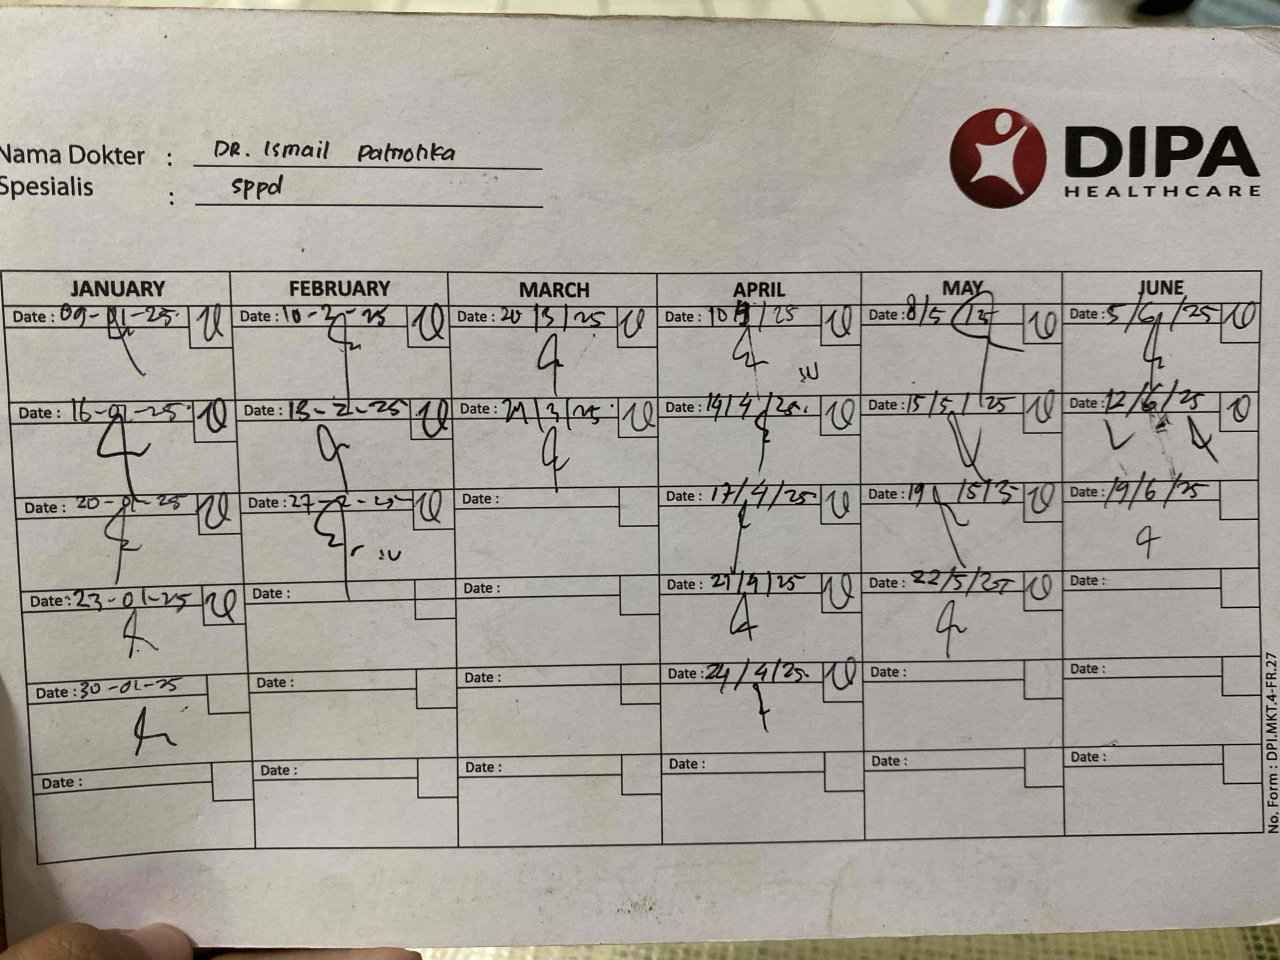 DIPA
HEALTHCARE
Nama Dokter : DR. Ismail
Spesialis : sppd
JANUARY FEBRUARY MARCH APRIL MAY JUNE
Date : 09-01-25 Date : 10-2-25 Date : 20/3/25 Date : 10 /25 Date : 8/5 Date : 5/6/25
Date : 16-01-25 Date : 13-2-25 Date : /3/25 Date : 14/4/25. Date : 15/5/25 Date : 12/6/25
Date : 20-01-25 Date : 27-2-25 Date : Date : 17/4/25 Date : 19 Date : 19/6/25
Date : 23-01-25 Date : Date : Date : 21/4/25 Date : 22/5/25 Date :
Date : 30-01-25 Date : Date : Date : 24/4/25. Date : Date :
Date : Date : Date : Date : Date : Date :
No. Form : DPI.MKT.4-FR.27